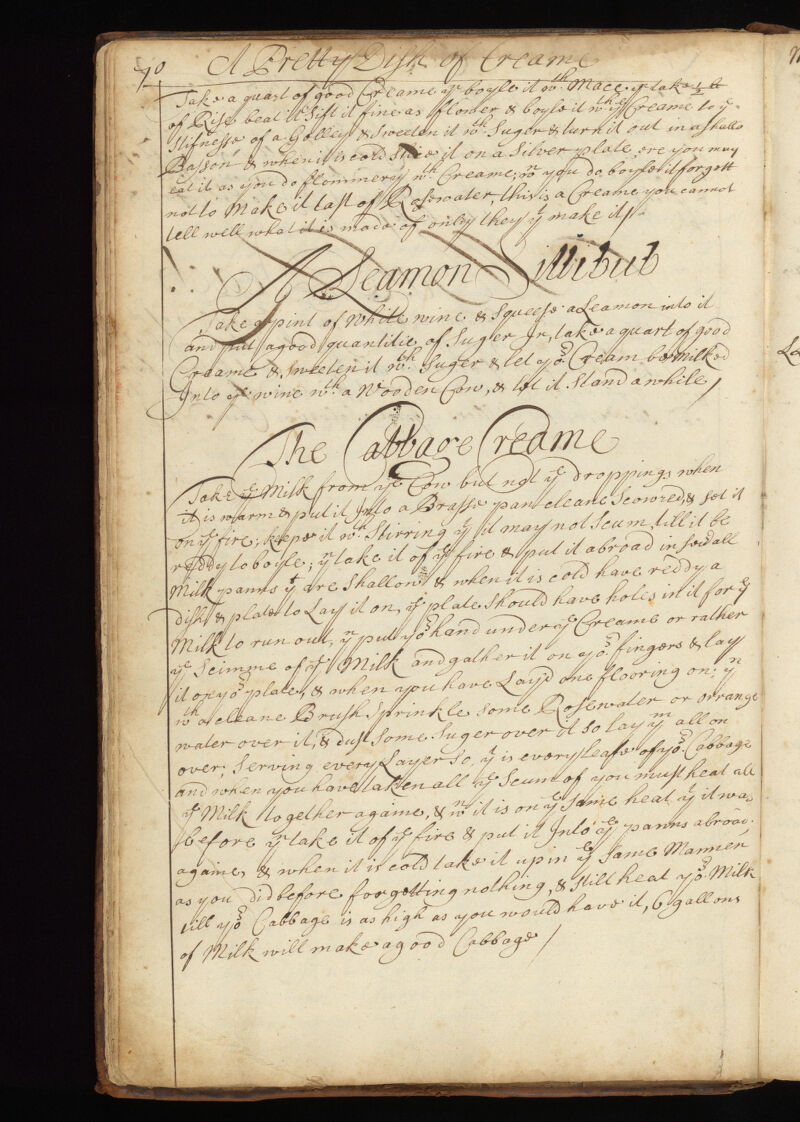 70 A Pretty Dish of Creame
Take a quart of good Creame yn boyle it wth Mace yn take
of Rise beat it sift it fine as flower & boyle it wth ye Creame to ye
Stifnesse of a Gelley & Sweeten it wth Suger & turn it out in a shallo
Basson & when it is cold slice it on a Silver plate ere you may
eat it as you do flommery wth Creame; wn you do boyle it forgett
not to Make it tast of Rosewater, this is a Creame you cannot
tell well what it is made of only they yt make it /
A Leamon Sillibub
Take a pint of White wine & Squeese a Leamon into it
and put a good quantitie of Suger In, take a quart of good
Creame & sweeten it wth Suger & let yor Cream be Milked
Into ye wine wth a Wooden Cow, & let it Stand a while /
The Cabbage Creame
Take ye Milk from ye Cow but not ye droppings when
it is warm & put it Into a Brasse pan cleane Scowred, & set it
on ye fire; keepe it wth Stirring yt it may not Scum till it be
reddy to boyle; yn take it of ye fire & put it abroad in sevall
Milk panns yt are Shallow & when it is cold have reddy a
dish & plate to Lay it on, ye plate should have holes in it for ye
Milk to run out, yn put yor hand under ye Creame or rather
ye Scimme of ye Milk and gather it on yor fingers & lay
it on yor plate, & when you have Layd one flooring on; yn
wth a cleane Brush Sprinkle some Rosewater or orrange
water over it, & dust Some Suger over it so lay ym all on
over; Serving every Layer so, yt is every leafe of yor Cabbage
and when you have taken all ye Scum of you must heat all
ye Milk together againe, & wn it is on ye same heat yt it was
before yn take it of ye fire & put it Into ye panns abroad
againe, & when it is cold take it up in ye Same Manner
as you did before forgetting nothing, & Still heat yor Milk
till yor Cabbage is as high as you would have it, 6 gallons
of Milk will make a good Cabbage /